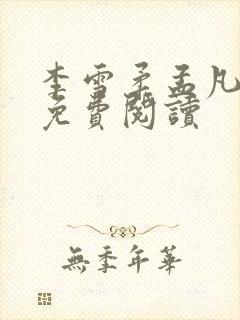 李雪矛孟凡
免費閱讀
無季年華